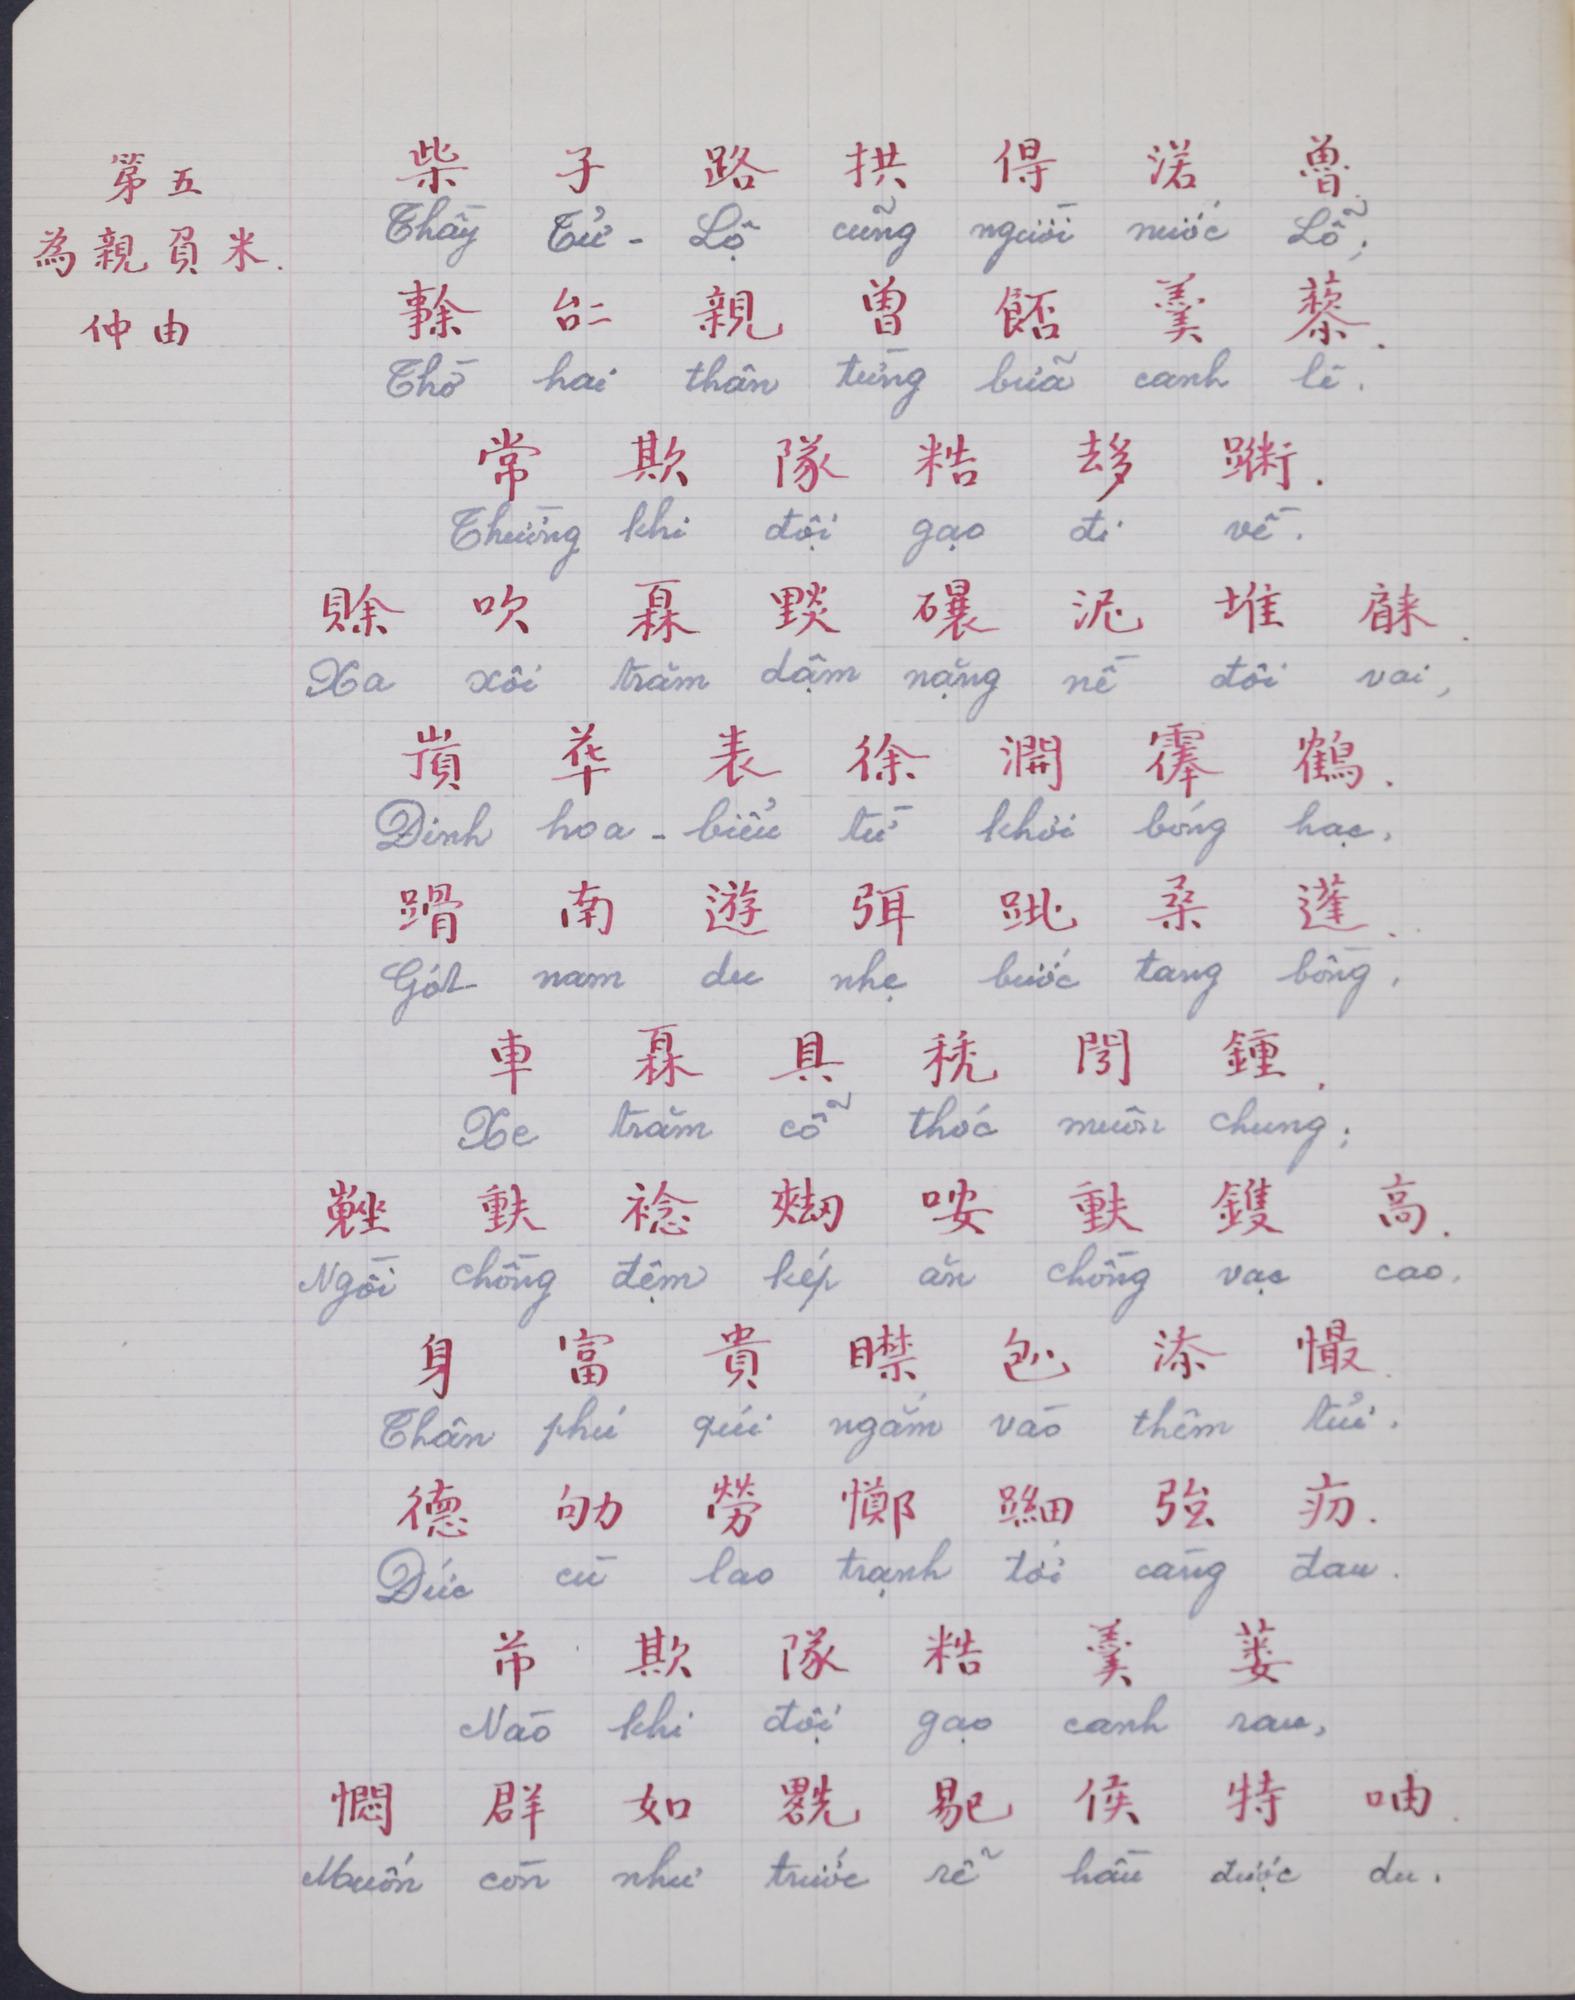 第五
為親負米.
仲由
柴 子 路 拱 得 渃 魯.
Thầy Tử - Lộ cũng người nước Lỗ;
親 曾 羹 藜.
Thờ hai thân từng bữa canh lê.
常 欺 隊 𥽌 𠫾 .
Thường khi đội gạo đi về.
賖 吹 𤾓 𨤮 泥 堆 .
Xa xôi trăm dậm nặng nề đôi vai,
華 表 徐 鶴.
Đỉnh hoa - biểu từ khơi bóng hạc,
南 遊 弭 𨀈 桑 蓬.
Gót nam du nhẹ bước tang bồng,
車 𤾓 具 𥟉 鍾.
Xe trăm cỗ thóc muôn chung;
𡎢 𥐆 咹 鑊 高.
Ngồi chồng đệm kép ăn chồng vạc cao.
身 富 貴 𠓨 添 .
Thân phú qúi ngắm vào thêm tủi,
德 劬 勞 強 疠.
Đức cù lao trạnh tới càng đau.
𱜢 欺 隊 𥽌 羹 蔞
Nào khi đội gạo canh rau,
憫 群 如 侯 特 .
Muốn còn như trước rễ hầu được du.